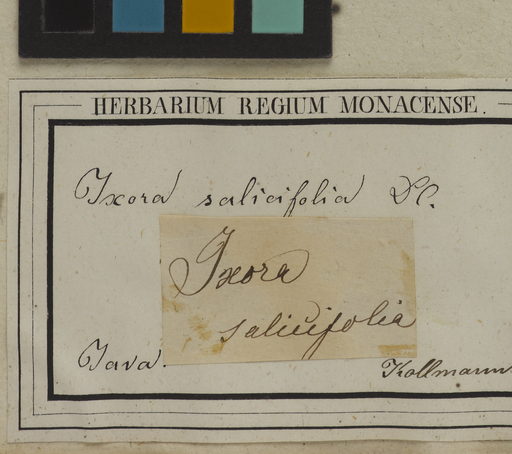 HERBARIUM REGIUM MONACENSE.
Ixora salicifolia DC.
Ixora
salicifolia
Java.
Kollmann